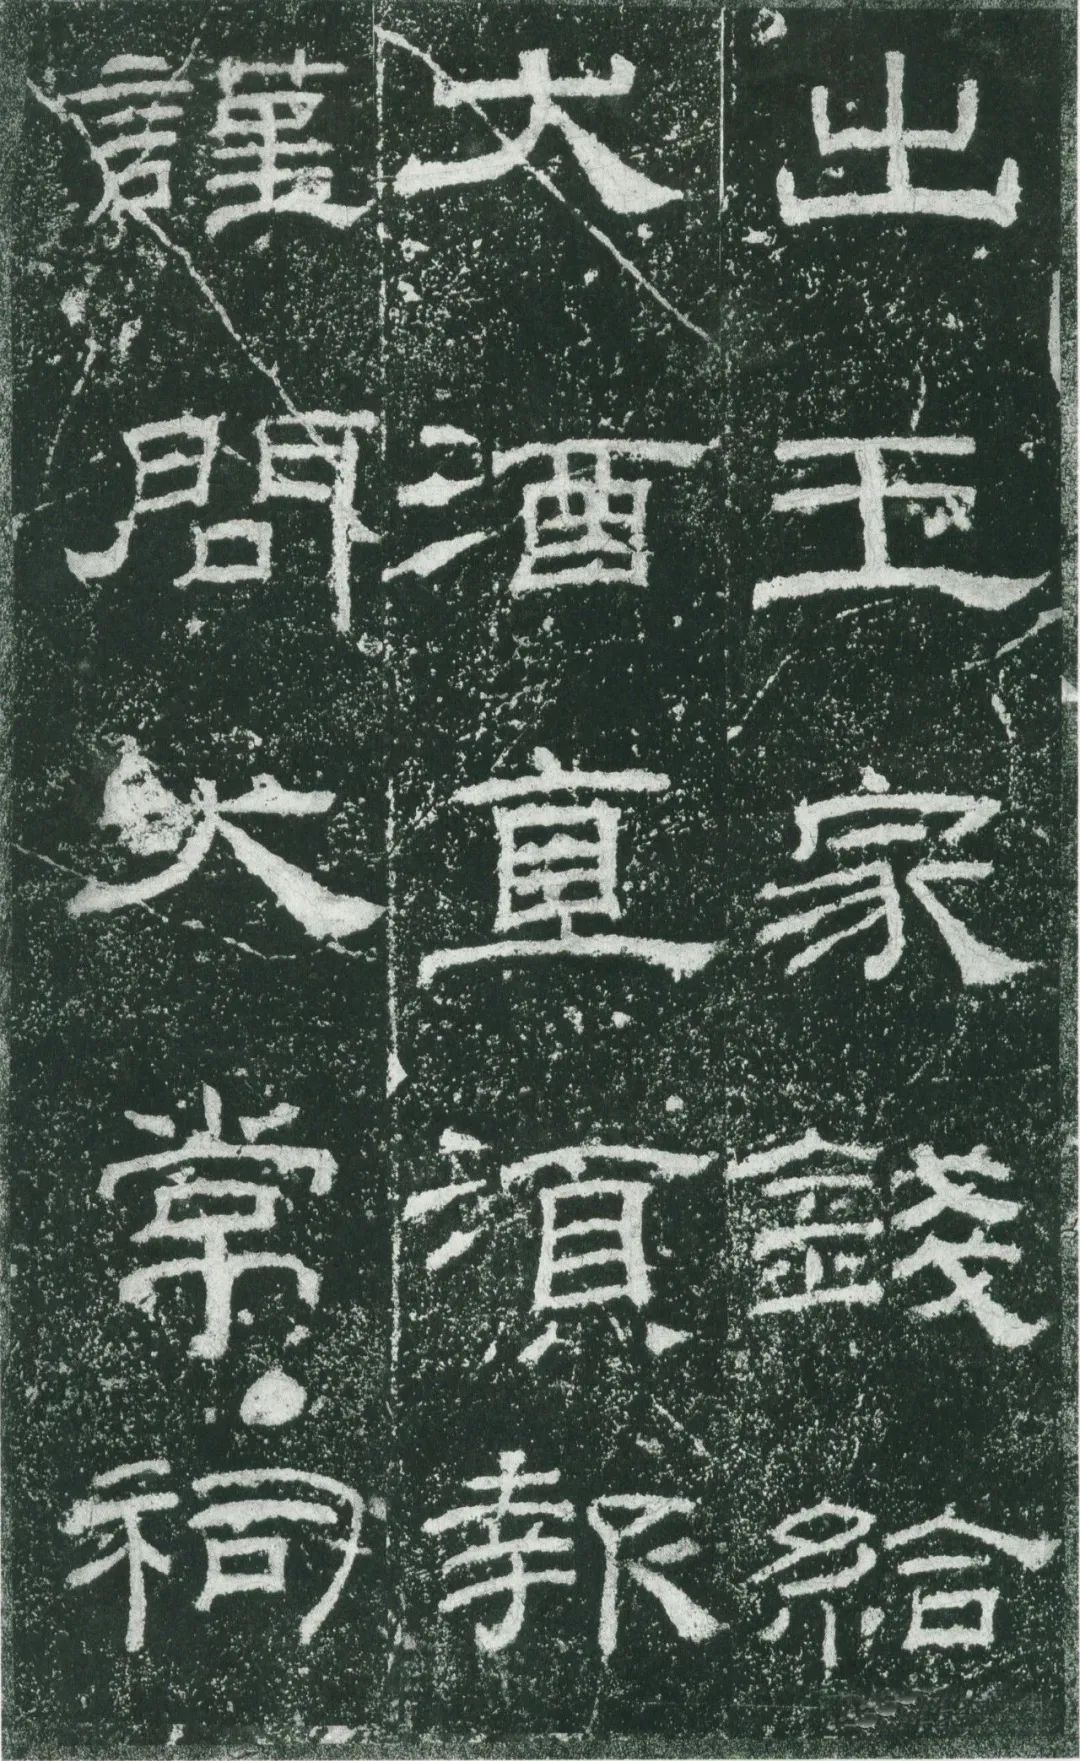 出王家錢給
大酒直須報
謹問大常祠